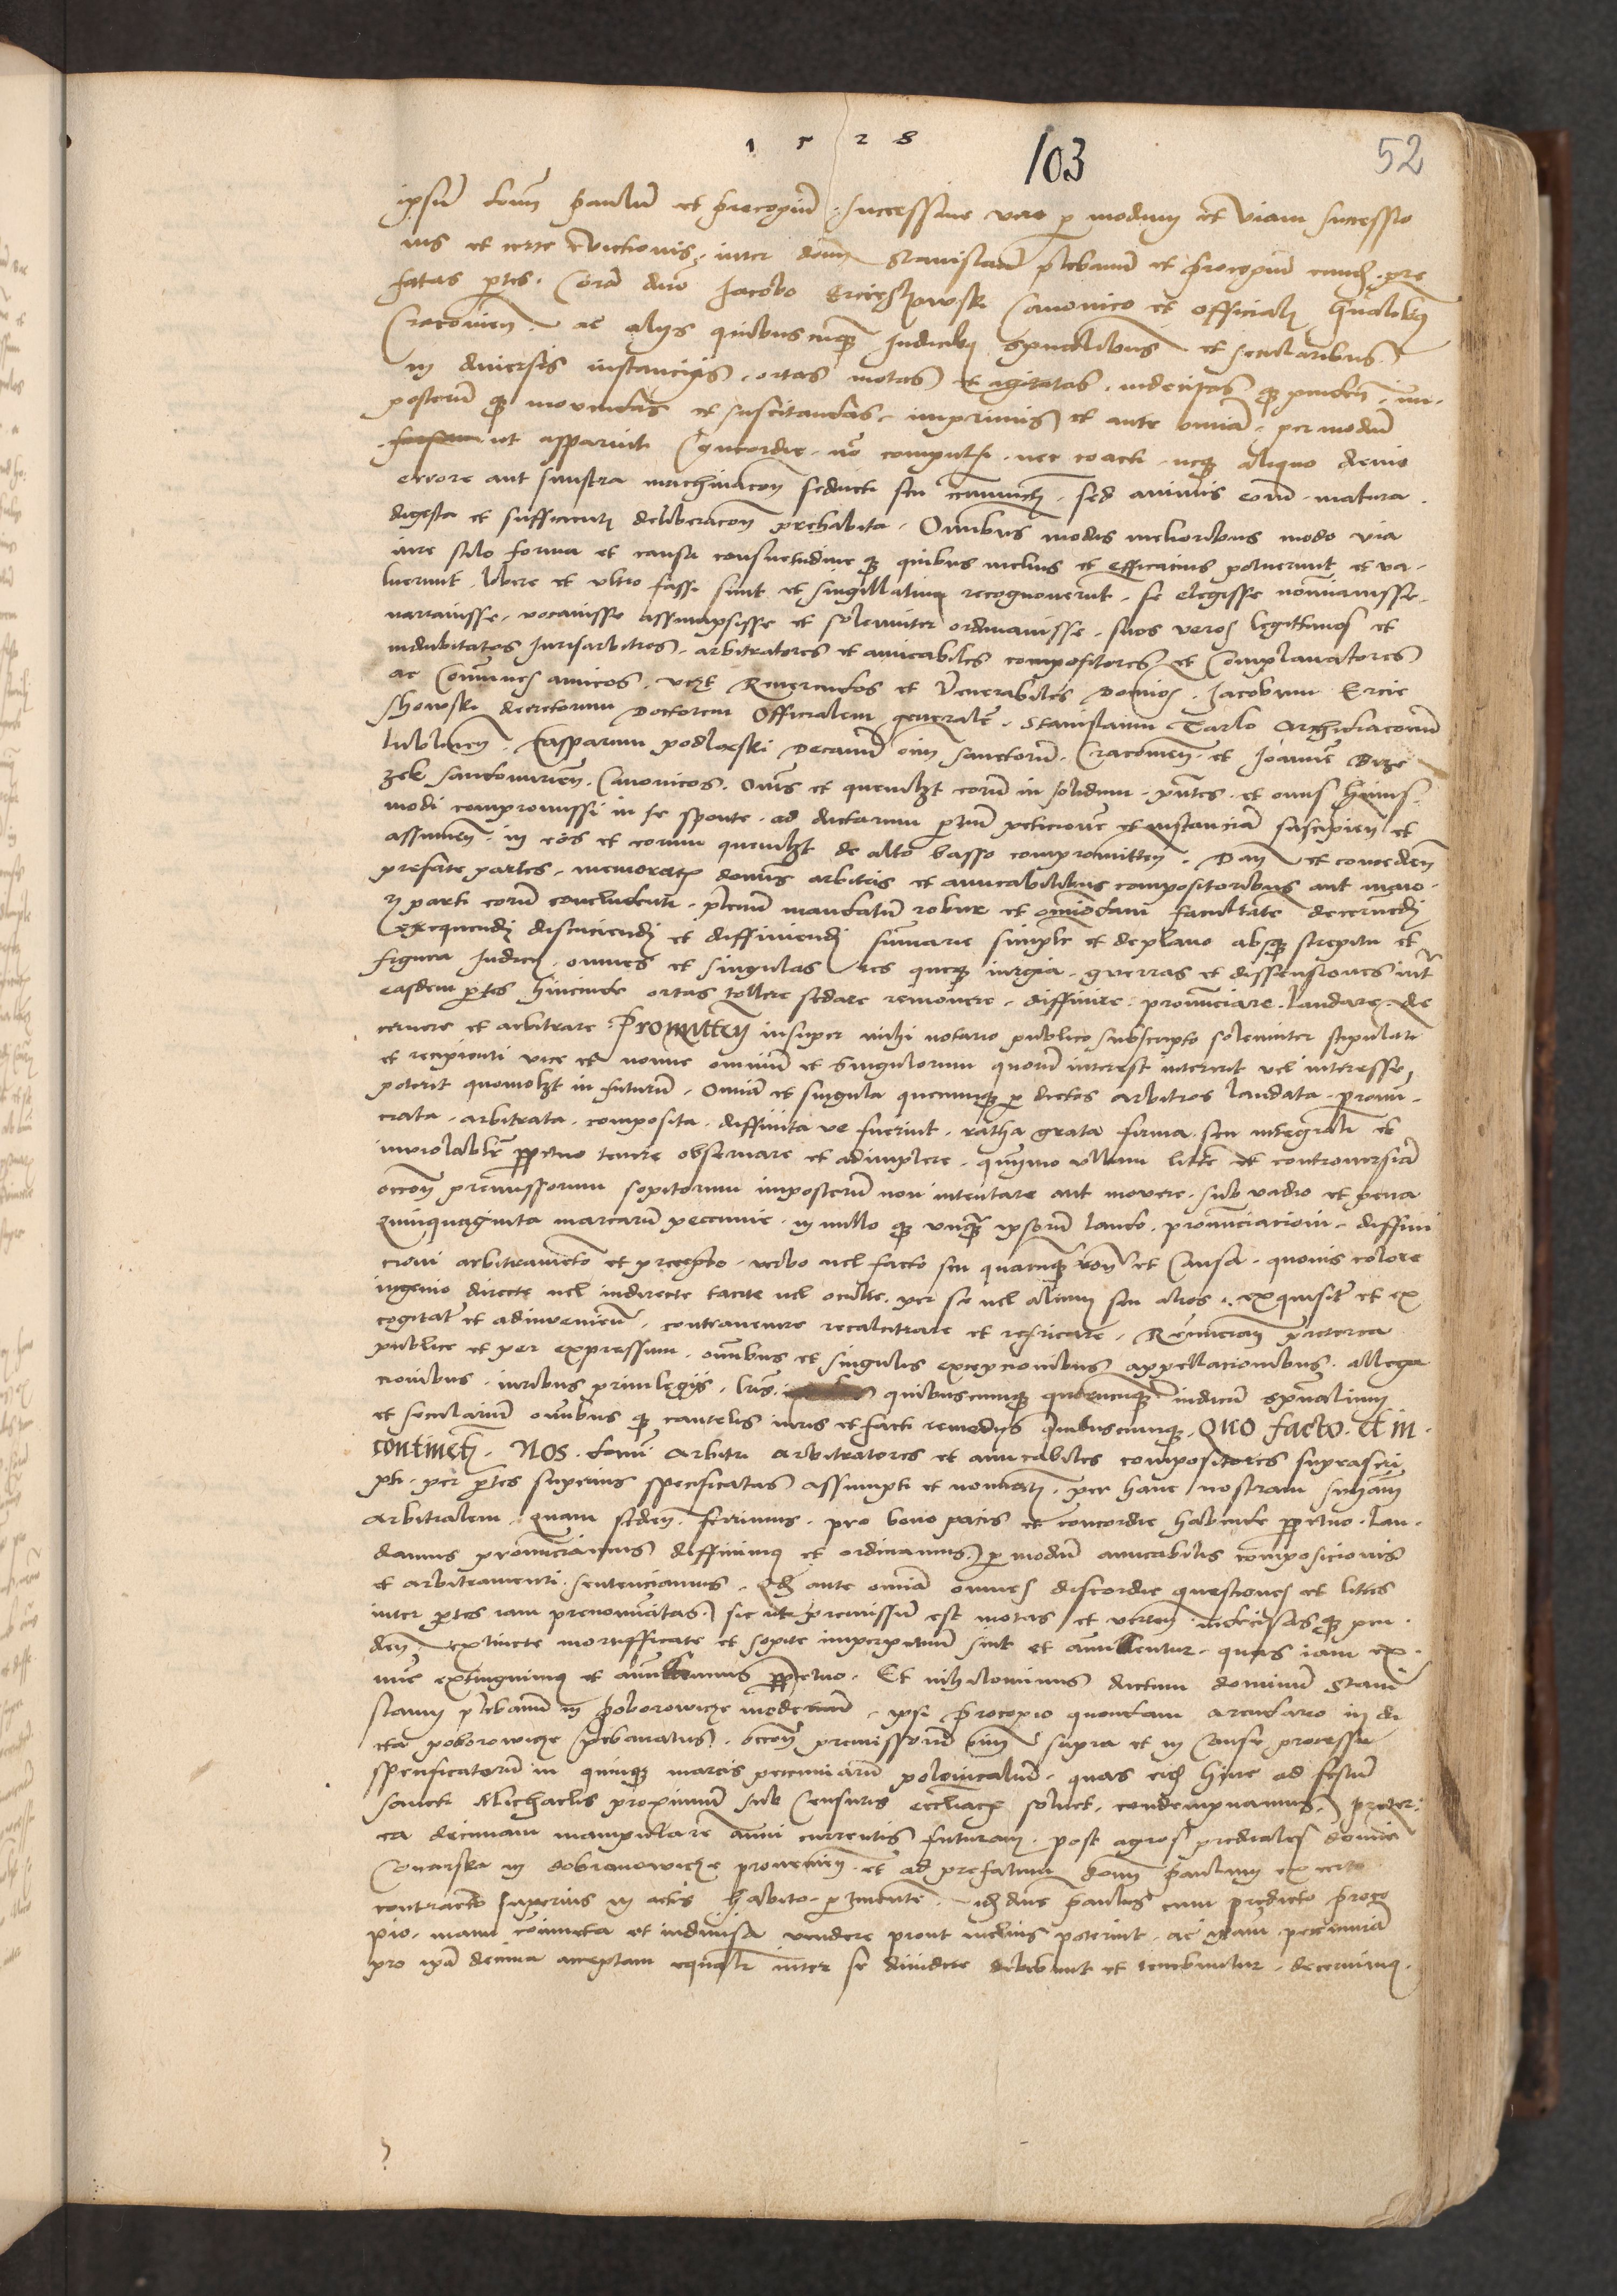 1528
103
52
ipsum domnum Paulum et Procopium successive vero per modum et viam successio
nis et certe evictionis inter domnum Stanislaum plebanum et Procopium eundem pre
fatas partes. Coram domino Jacobo Erczieshowski Canonico et officiali generali
Cracovien. ac alys quibuscunque Iudicibus spiritualibus et secularibus
in diversis instancys ortas motas et agitatas indecisas que penden. im
posterum que movendas et suscitandas imprimis et ante omnia per modum
ut apparuit concordie non compulsi nec coacti neque aliquo devio
errore aut sinistra machinacione seducti seu sed animis eorum matura
digesta et sufficienti deliberacione prehabita. Omnibus modis melioribus modo via
iure stilo forma et causa consuetudine que quibus melius et efficacius potuerunt et va
luerunt libere et ultro fassi sunt et singillatim recognoverunt se elegisse nominavisse
narravisse vocavisse assumpsisse et solenniter ordinavisse suos veros legittimos et
indubitatos Iurisarbitros arbitratores et amicabiles compositores et Complanatores
ac Communes amicos. vcz. Reverendos et Venerabiles Dominos Jacobum Erczie
showski decretorum Doctorem Officialem generalem. Stanislaum Tarlo Archidiaconum
lublinen. Casparum podloski Decanum omnium sanctorum Cracovien. et Joannem Brze
zek sandomirien. Canonicos. Omnes et quemlzt eorum in solidum pntes et onus huius
modi compromissi in se sponte ad dictarum partium peticionem et instanciam suscipien. et
assumen. in eos et eorum quemlzt de alto basso compromitten. Dan. et conceden.
prefate partes memoratis domnis arbitris et amicabilibus compositoribus aut maio
ri parti eorum concludenti plenum mandatum robur et omnimodam facultatem decernendi
exequendi discuciendi et diffiniendi sumarie simpliciter et de plano absque strepitu et
figura Iudicy omnes et singulas lites queque iurgia guerras et dissensiones inter
easdem partes hincinde ortas tollere sedare removere diffinire pronunciare laudare de
cernere et arbitrare. Promitten. insuper mihi notario publico subscripto solenniter stipulanti
et recipienti vice et nomine omnium et singulorum quorum interest intererit vel interesse
poterit quomolzt in futurum. Omnia et singula quecunque per dictos arbitros laudata pronun
ciata arbitrata composita diffinita ve fuerint ratha grata firma seu integrali et
inviolabiliter perpetuo tenere observare et adimplere quinymo ullam litem et controversiam
occasione premissorum sopitorum imposterum non intentare aut movere sub vadio et pena
Quinquaginta marcarum peccunie in nullo que unquam ipsorum laudo pronunciacioni diffini
cioni arbitramento et precepto verbo vel facto seu quacunque racione et causa quovis colore
ingenio directe vel indirecte tacite vel oculte per se vel alium seu alios exquisite et ex
cogitate et adinvenien. contravenire recalcitrare et refricare. Renuncian. preterea
publice et per expressum omnibus et singulis excepcionibus appellacionibus allega
cionibus iuribus privilegys lris quibuscunque iudicum spiritualium
et secularium omnibus que cautelis iuris et facti remedys quibuscunque. Quo facto et in
continenti. Nos domni arbitri arbitratores et amicabiles compositores suprascri
pti per partes superius specificatas assumpti et nominati per hanc nostram sententiam
arbitralem quam seden. ferrimus pro bono pacis et concordie habende perpetuo lau
damus pronunciamus diffinimus et ordinamus per modum amicabilis composicionis
et arbitramenti sentenciamus. Quod ante omnia omnes discordie questiones et lites
inter partes iam prenominatas sic ut premissum est motas et verten. indecisas que pen
den. extincte mortifficate et sopite imperpetuum sint et annullentur quas iam ex
nunc extinguimus et annullamus perpetuo. Et nihilominus dictum dominum Stani
slaum plebanum in poborowicze modernum ipsi Procopio quondam arendario in di
cta poborowicze plebanatus occasione premissorum omnium supra et in causa processu
specificatorum in quinque marcis pecuniarum polonicalium quas eidem hinc ad festum
sancti Michaelis proximum sub Censuris ecclesiasticis solvet condempnamus. Preter
ea decimam manipularem anni currentis futuram post agros prediales domine
Conarska in dobranowicze provenien. et ad prefatum domnum Paulum ex certo
contractu superius in actis habito pertinentem idem dominus Paulus cum predicto Proco
pio manu coniuncta et indivisa vendere prout melius poterint ac ipsam pecuniam
pro ipsa decima acceptam equali inter se dividere debebunt et tenebuntur decernimus.